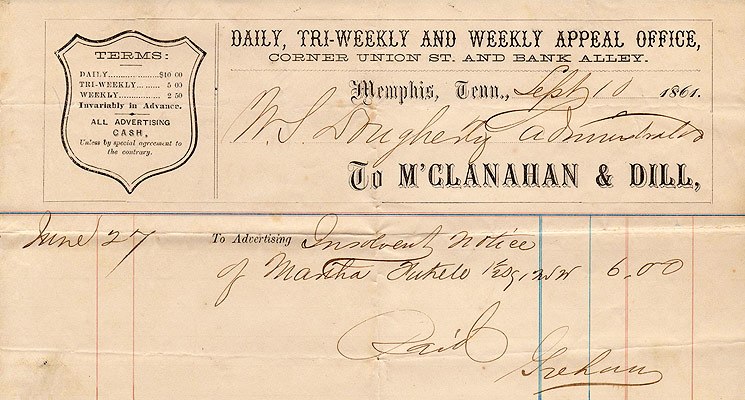 TERMS:
DAILY....................$10 00
TRI-WEEKLY........ 5 00
WEEKLY.............. 2 50
Invariably in Advance.
ALL ADVERTISING
CASH,
Unless by special agreement to
the contrary.
DAILY, TRI-WEEKLY AND WEEKLY APPEAL OFFICE,
CORNER UNION ST. AND BANK ALLEY.
Memphis, Tenn., Sept 10 1861.
W. S. Dougherty Administrator
To M'CLANAHAN & DILL,
June 27 To Advertising Insolvent Notice
of Martha 6.00
Paid